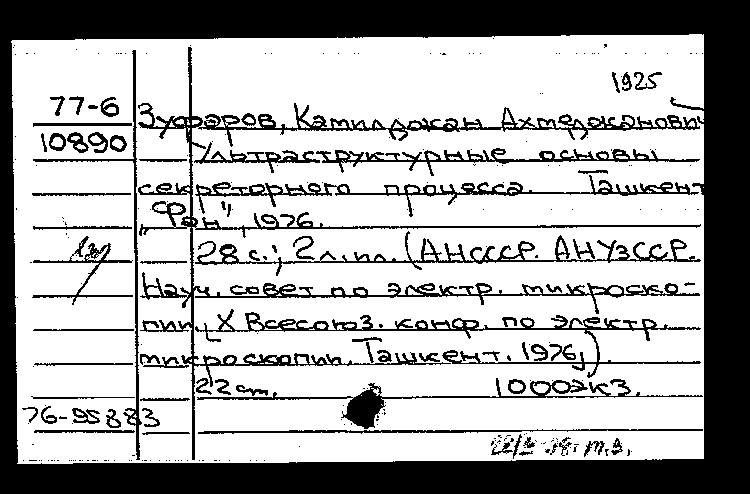 1925
77-6 Зуфаров, Камилджан Ахмеджанович
10890 Ультраструктурные основы
секреторного процесса. Ташкент
"Фан", 1976.
28 с.; 2 л. ил. (АН СССР. АН УзССР.
Науч. совет по электр. микроско-
пии. X Всесоюз. конф. по электр.
микроскопии. Ташкент. 1976).
22 cm. 1000 экз.
76-95883